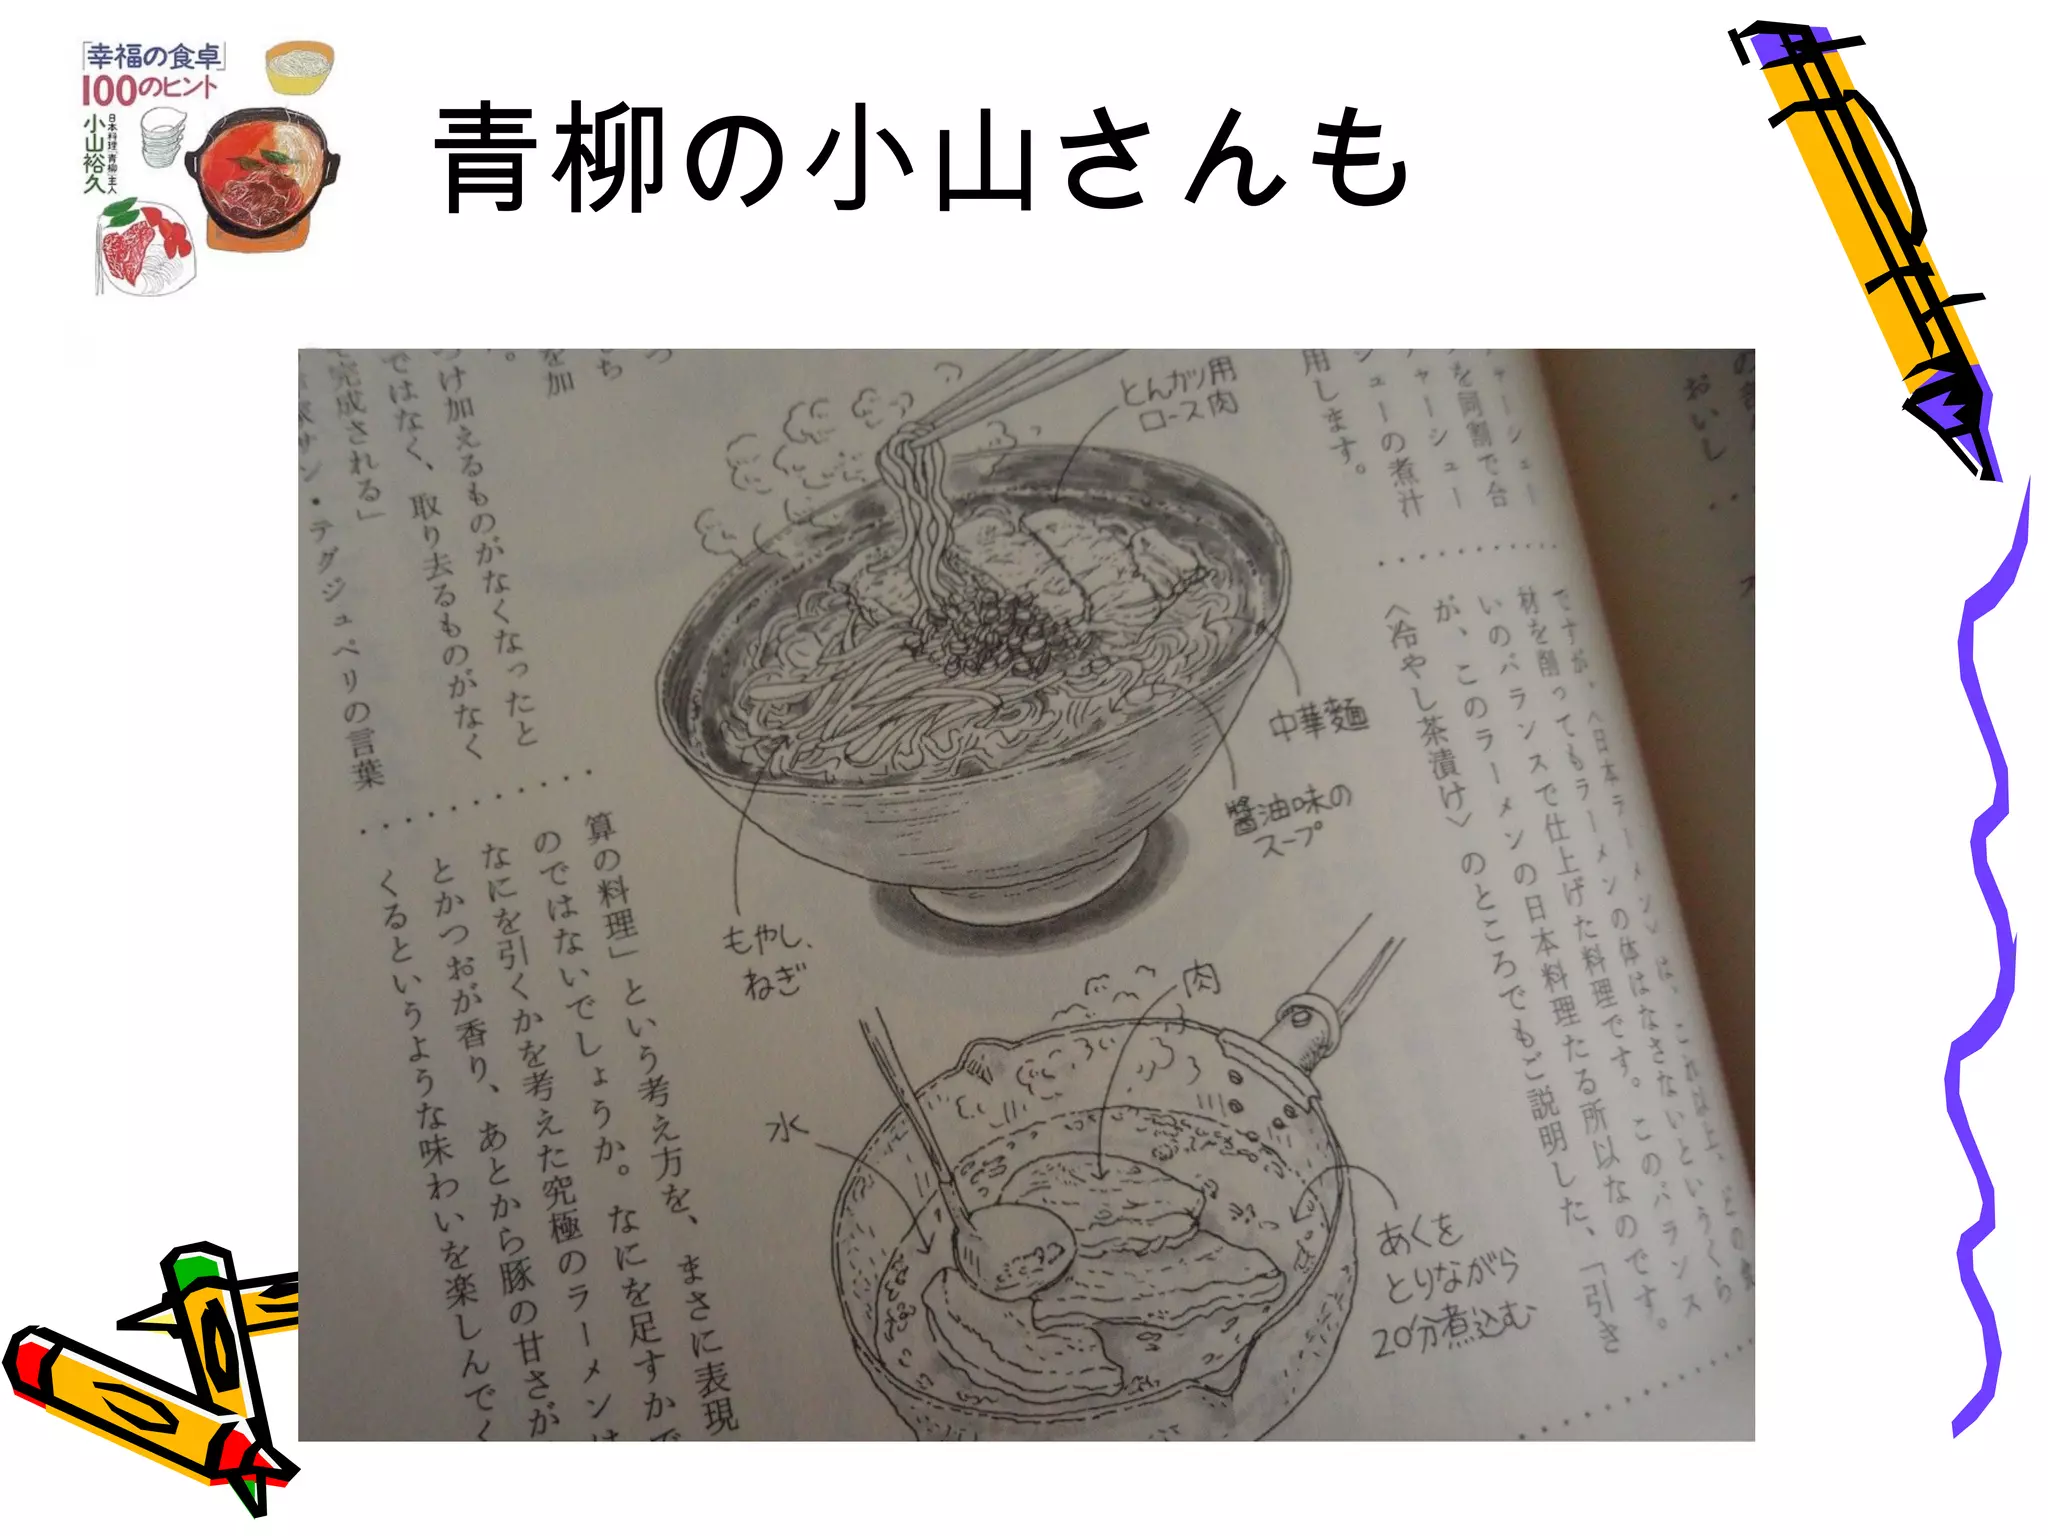 「幸福の食卓」
100のヒント
日本料理「青柳」主人
小山裕久
青柳の小山さんも
とんカツ用
ロース肉
中華麺
醬油味の
スープ
もやし、
ねぎ
肉
水
あくを
とりながら
20分煮込む
シューの煮汁
用します。
ですが、〈日本ラーメン〉は、これ以上、
材を削ってもラーメンの体はなさないというくら
いのバランスで仕上げた料理です。このバランス
が、このラーメンの日本料理たる所以なのです。
〈冷やし茶漬け〉のところでもご説明した、「引き
算の料理」という考え方を、まさに表現
のではないでしょうか。なにを足すかで
なにを引くかを考えた究極のラーメンは
とかつおが香り、あとから豚の甘さが
くるというような味わいを楽しんでく
を加
つけ加えるものがなくなったと
ではなく、取り去るものがなく
完成される」
サン・テグジュペリの言葉